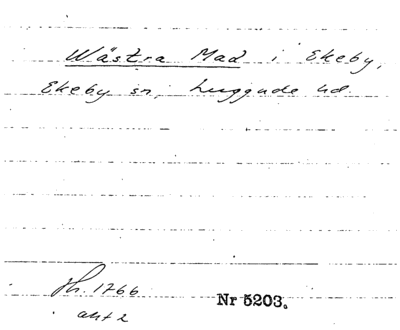 Wästra Mad i Ekeby,
Ekeby sn, Luggude hd.
1766
akt 2
Nr 5203.